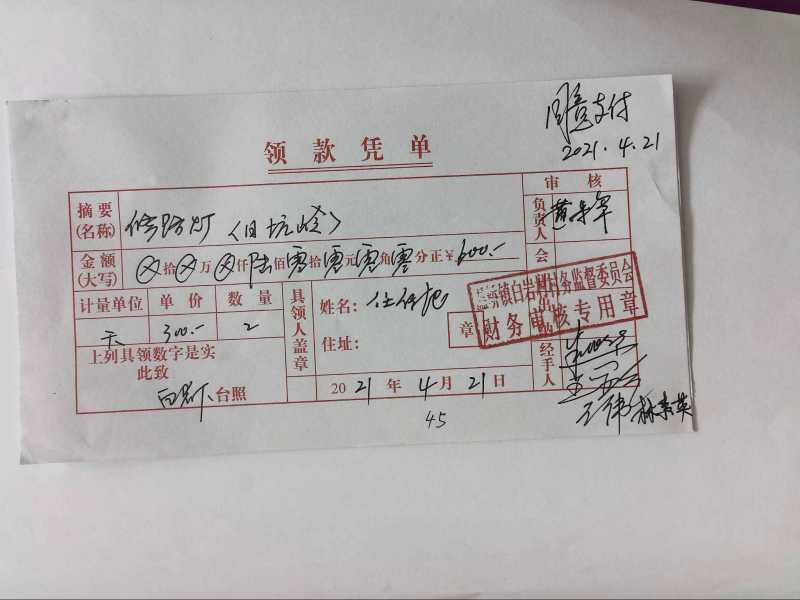 同意支付
2021.4.21
领款凭单
摘要(名称) 修路灯〈旧坑岭〉
审核
负责人
金额(大写) ⊗拾⊗万⊗仟陆佰零拾零元零角零分正¥600.-
会
计量单位 单价 数量
天 300.- 2
具领人盖章
姓名:
住址:
章
镇白岩村村务监督委员会
财务审核专用章
经手人
上列具领数字是实
此致
台照
2021年4月21日
王伟 林素英
45